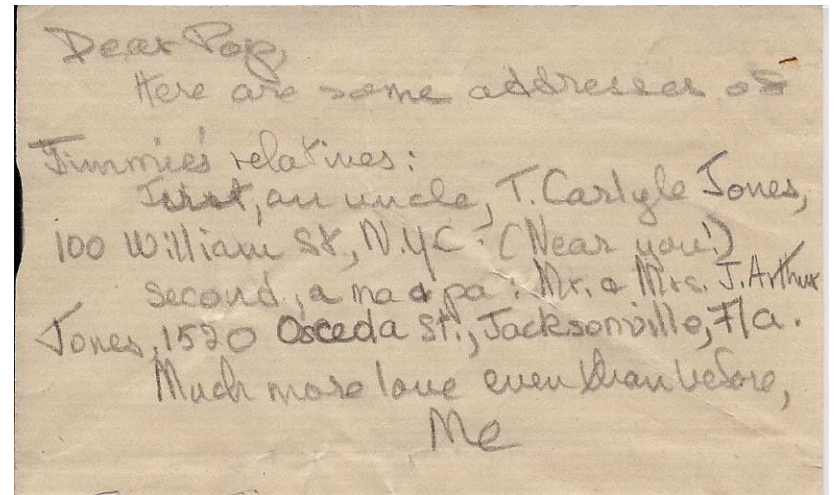 Dear Pop,
Here are some addresses of
Jimmie's relatives:
First, an uncle, T. Carlyle Jones,
100 William St., N.Y.C. (Near you!)
second, a ma & pa: Mr. & Mrs. J. Arthur
Jones, 1520 Osceda St., Jacksonville, Fla.
Much more love even than before,
Me